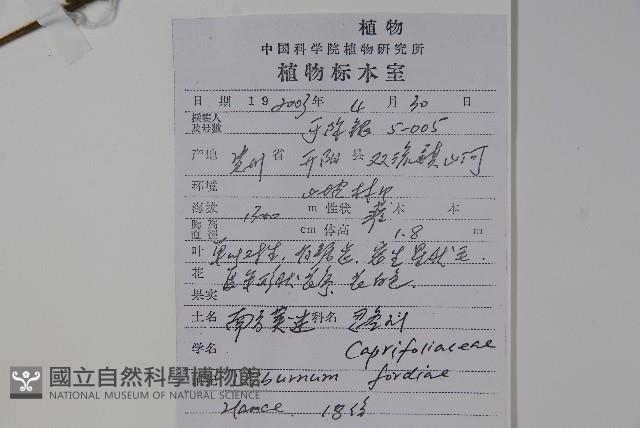 植物
中国科学院植物研究所
植物标本室
日期 19 2003年 4 月 30 日
採集人
及号數 S-005
产地 贵州 省 开阳 县 双流镇
环境 山坡林中
海拔 1300 m 性狀 灌 木 本
胸高
直徑 cm 体高 1.8 m
叶 单叶对生, 有锯齿, 密生星状毛.
花 花白色.
果实
土名 南方荚蒾 科名 忍冬科
学名 Caprifoliaceae
Viburnum fordiae
Hance 18份
國立自然科學博物館
NATIONAL MUSEUM OF NATURAL SCIENCE